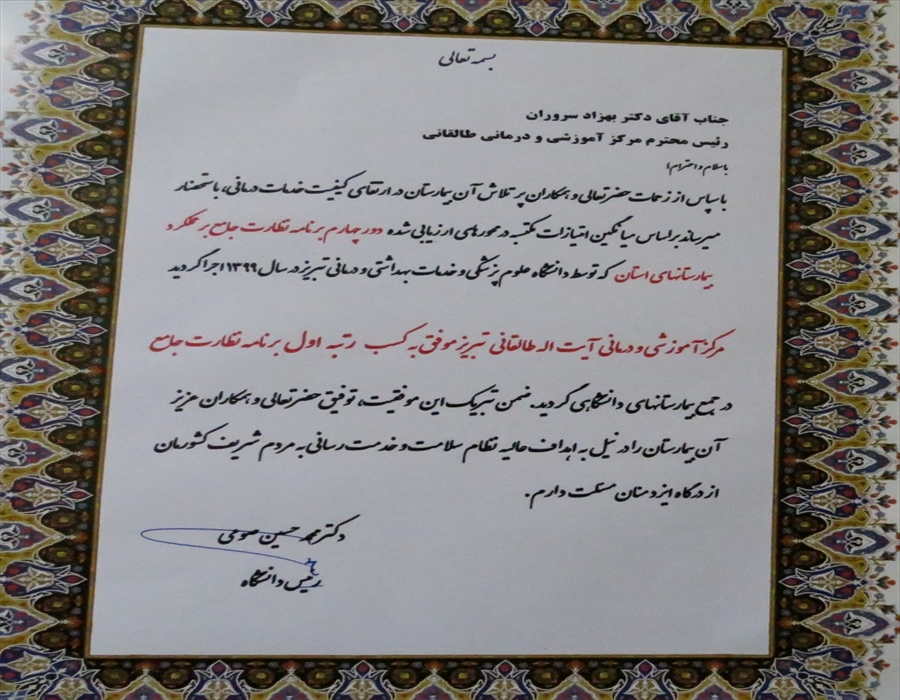 بسمه تعالی
جناب آقای دکتر بهزاد سروران
رئیس محترم مرکز آموزشی و درمانی طالقانی
باسلام و احترام؛
با سپاس از زحمات حضرتعالی و همکاران پر تلاش آن بیمارستان در ارتقای کیفیت خدمات درمانی، باستحضار
میرساند براساس میانگین امتیازات مکتسبه در محورهای ارزیابی شده دور چهارم برنامه نظارت جامع بر عملکرد
بیمارستانهای استان که توسط دانشگاه علوم پزشکی و خدمات بهداشتی و درمانی تبریز در سال ۱۳۹۹ اجرا گردید
مرکز آموزشی و درمانی آیت اله طالقانی تبریز موفق به کسب رتبه اول برنامه نظارت جامع
در جمع بیمارستانهای دانشگاهی گردید. ضمن تبریک این موفقیت، توفیق حضرتعالی و همکاران عزیز
آن بیمارستان را در نیل به اهداف عالیه نظام سلامت و خدمت رسانی به مردم شریف کشورمان
از درگاه ایزد منان مسئلت دارم.
دکتر محمد حسین صومی
رئیس دانشگاه